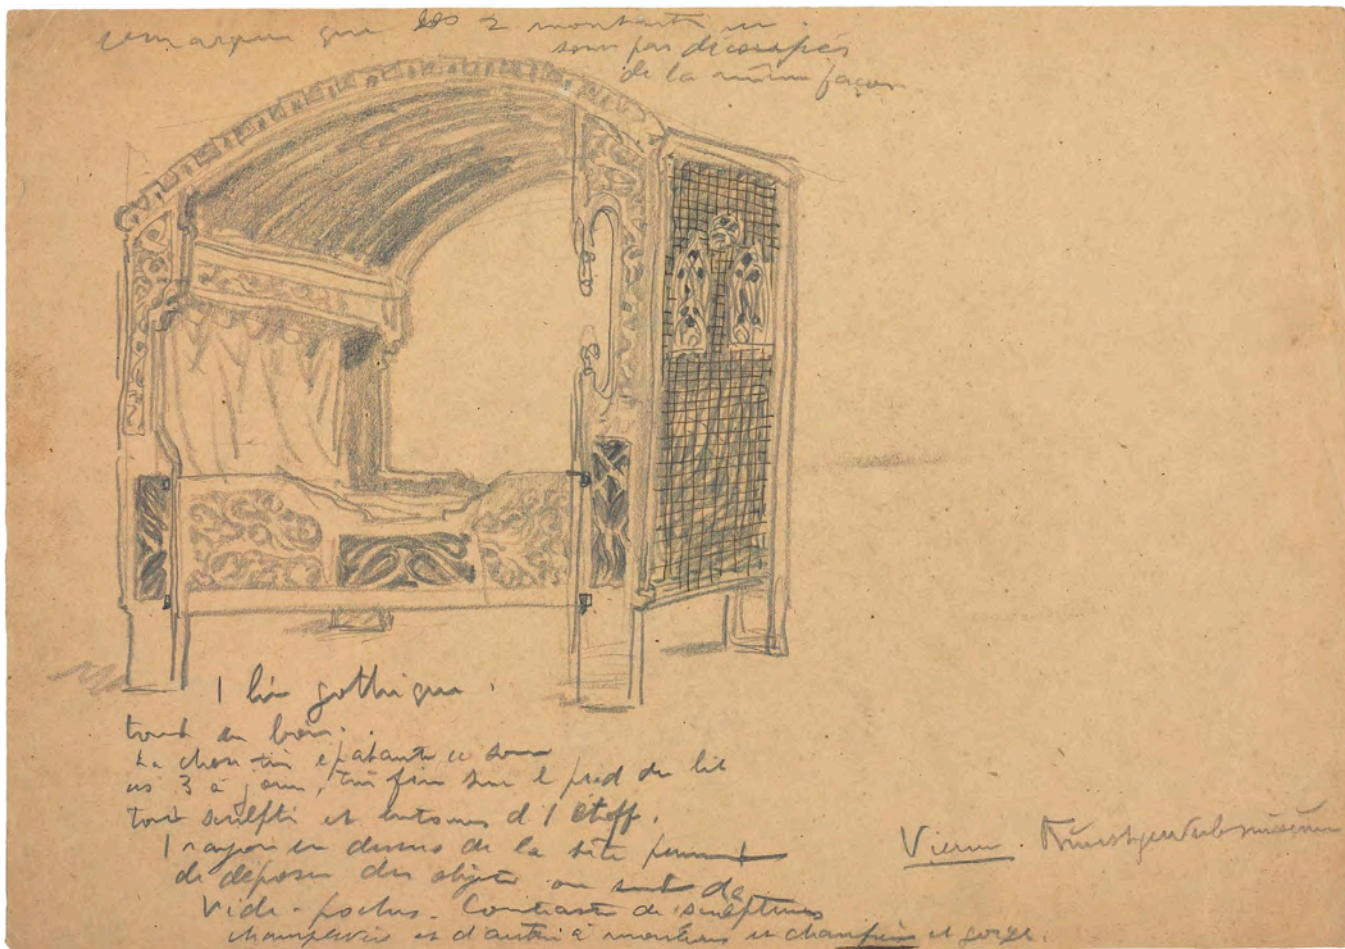 remarquer que les 2 montants ne
sont pas découpés
de la même façon
1 lit gothique.
tout en bois.
La chose très épatante ce sont
ces 3 à jour, très fin sur le pied du lit
tout sculpté et entouré d 1 étoffe.
1 rayon en dessus de la tête
de déposer des objets ou de
Vide-poches. Contraste de sculptures
champlevées et d'autres à moulures et chanfrein et gorge.
Vienne. Kunstgewerbemuseum